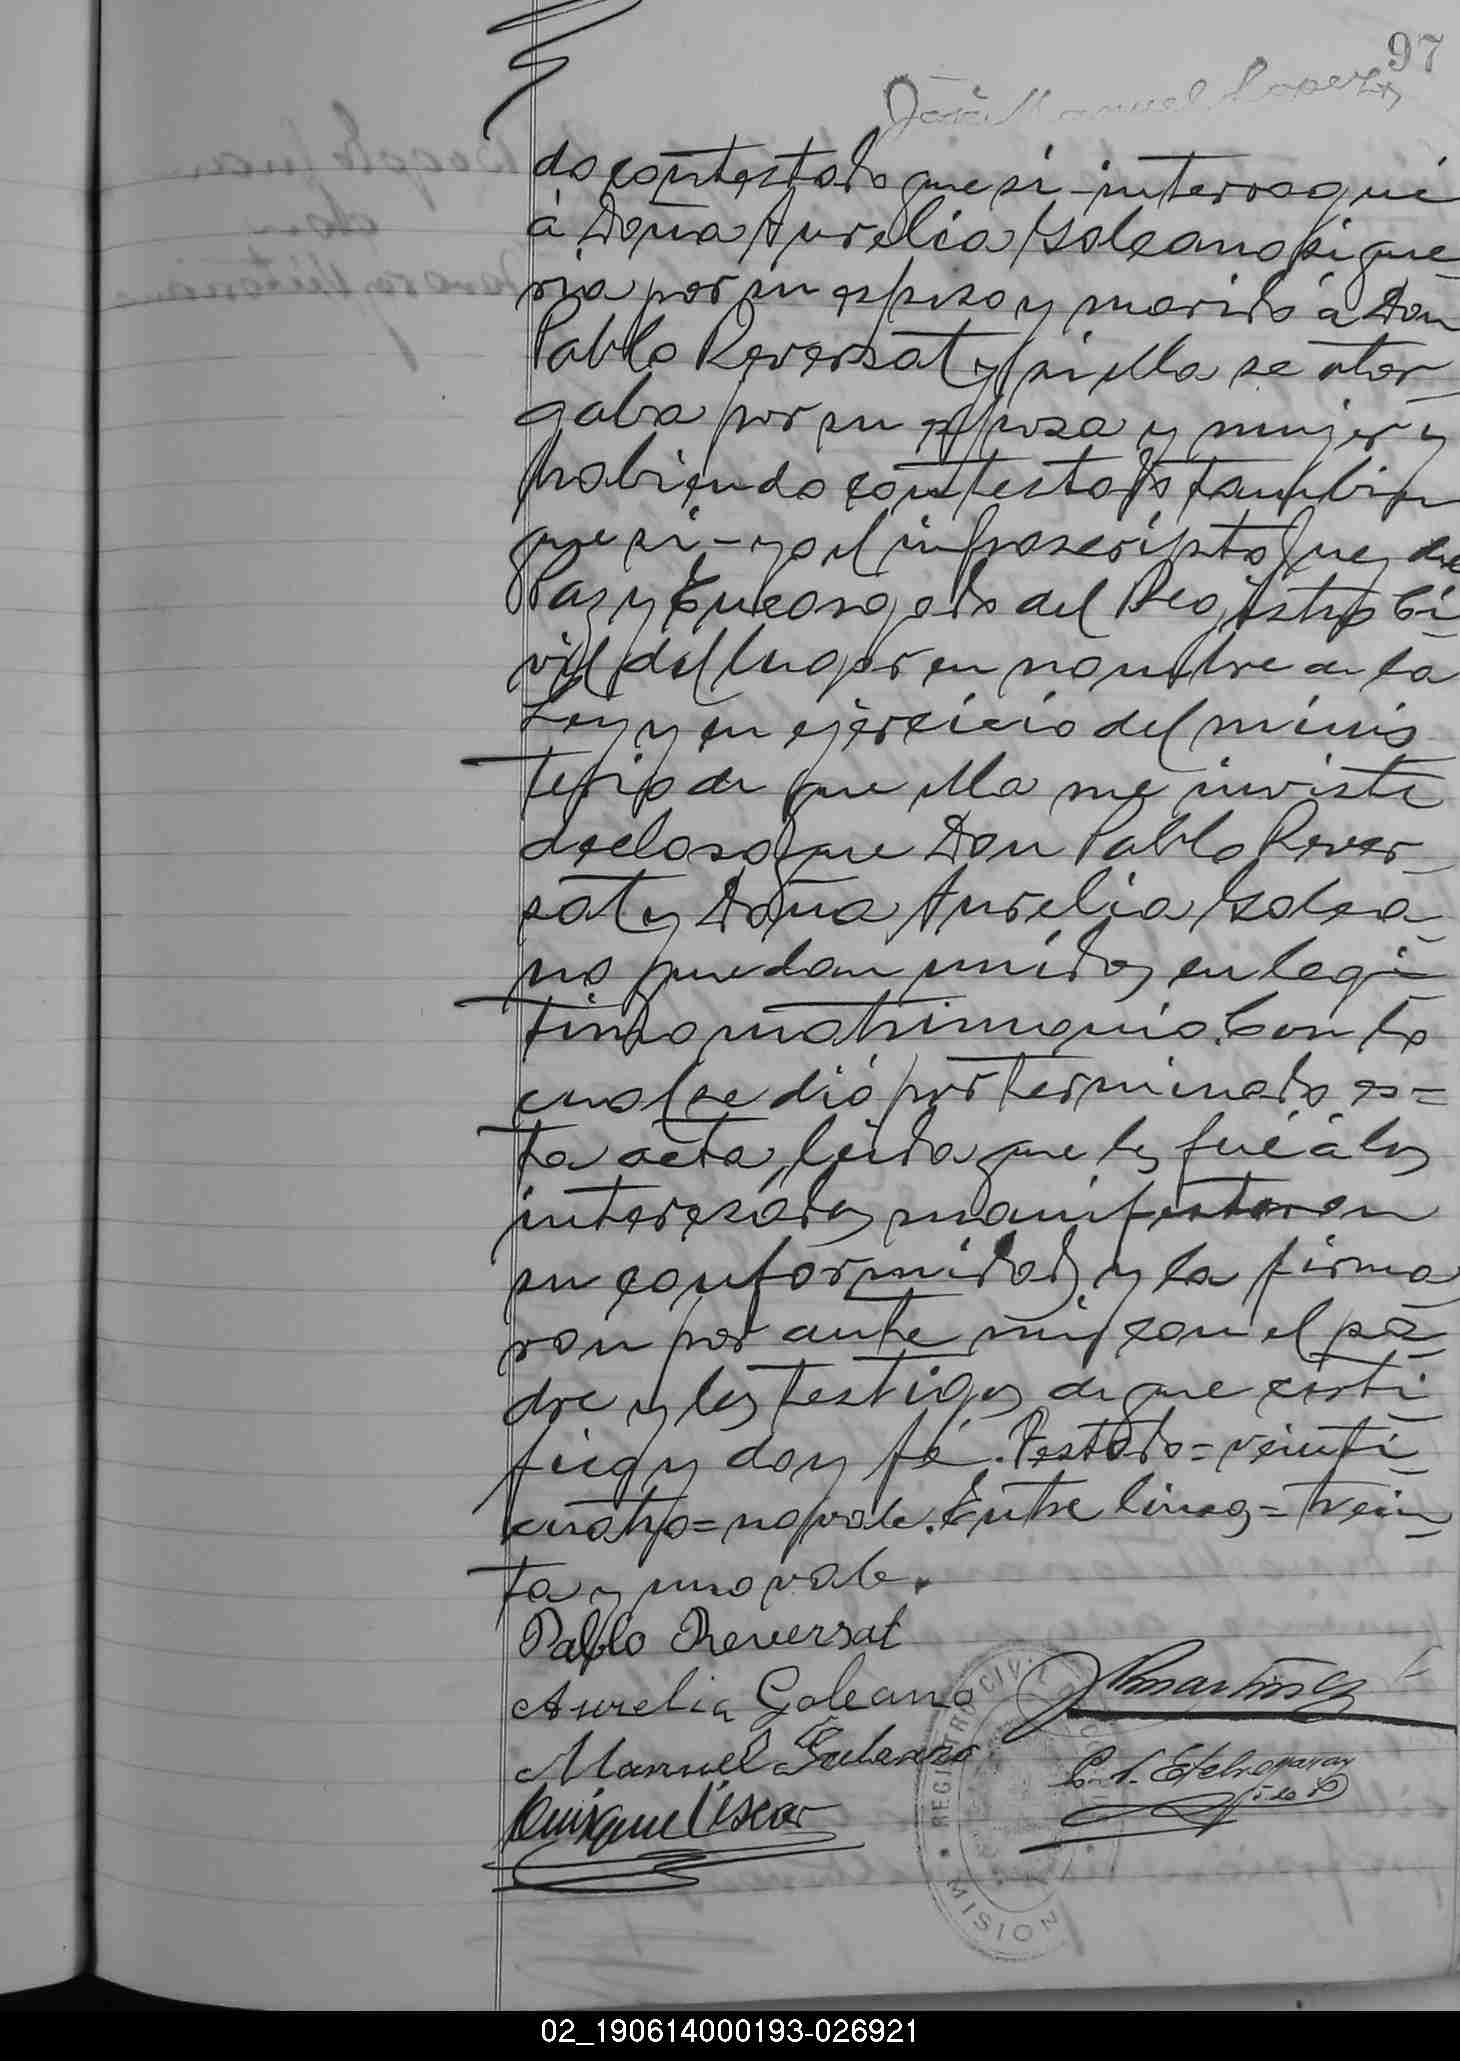 97
José Manuel Lopez
do contestado que si - interrogué
á Doña Aurelia Goleano si que-
ria por su esposo y marido á Don
Pablo Reversat y si ella se otor-
gaba por su esposa y mujer y
habiendo contestado tambien
que si - yo el infrascripto Juez de
Paz y Encargado del Registro Ci-
vil del lugar en nombre de la
Ley y en ejercicio del minis-
terio de que ella me inviste
declaro que Don Pablo Rever-
sat y Doña Aurelia Golea-
no quedan unidos en legi-
timo matrimonio. Con lo
cual se dió por terminado es=
ta acta, leida que les fué á los
interesados manifestaron
su conformidad y la firma
ron por ante mi con el pa-
dre y los testigos de que certi-
fico y doy fé. Testado = veinti-
cuatro = no vale. Entre lineas = trein-
ta y uno vale.
Pablo Reversat
Aurelia Goleano
Manuel Galeano
Enrique Viscar
Martinez
Etcheparay
REGISTRO CIVIL
MISION
02_190614000193-026921